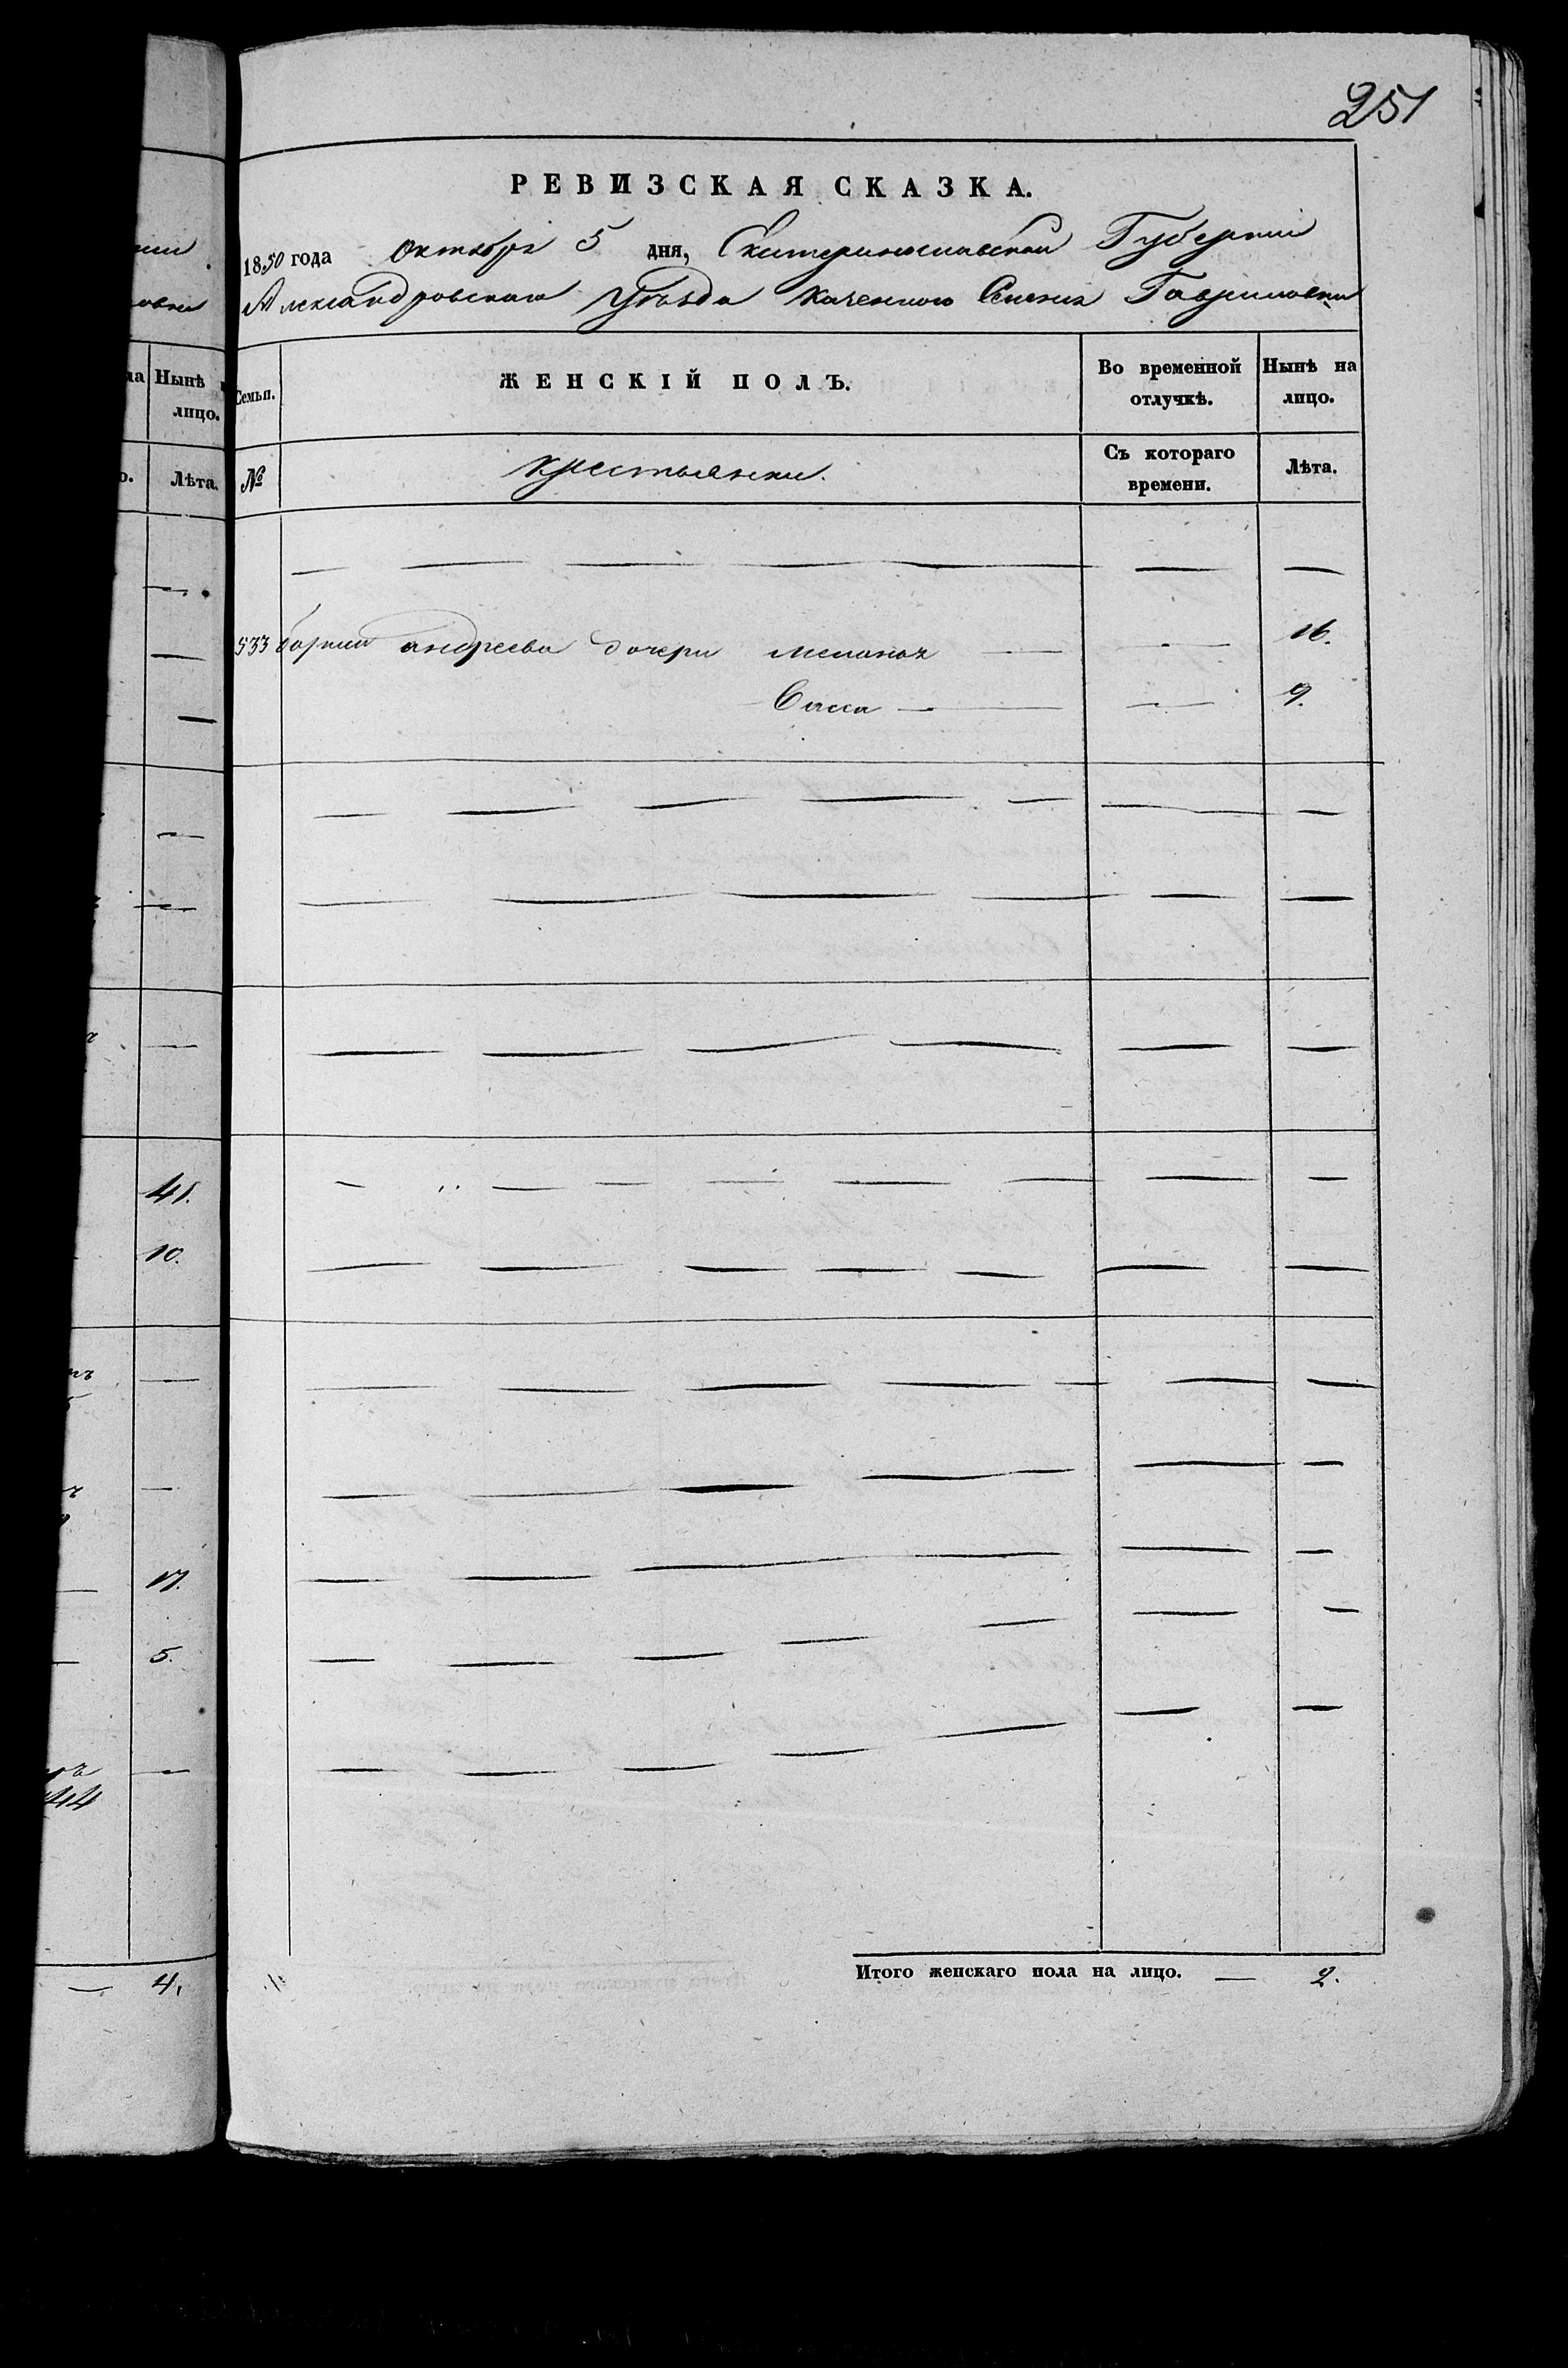 251
РЕВИЗСКАЯ СКАЗКА.
1850 года Октября 5 дня, Екатеринославской Губернии
Александровскаго Уѣзда Казенного Селения Гавриловки
Семьи. ЖЕНСКІЙ ПОЛЪ. Во временной отлучкѣ. Нынѣ на лицо.
№ Крестьянки. Съ котораго времени. Лѣта.
533 андреева дочери Меланья — — 16.
Васса — — 9.
Итого женскаго пола на лицо. — 2.
Нынѣ
лицо.
Лѣта.
41.
10.
17.
5.
44
— 4.